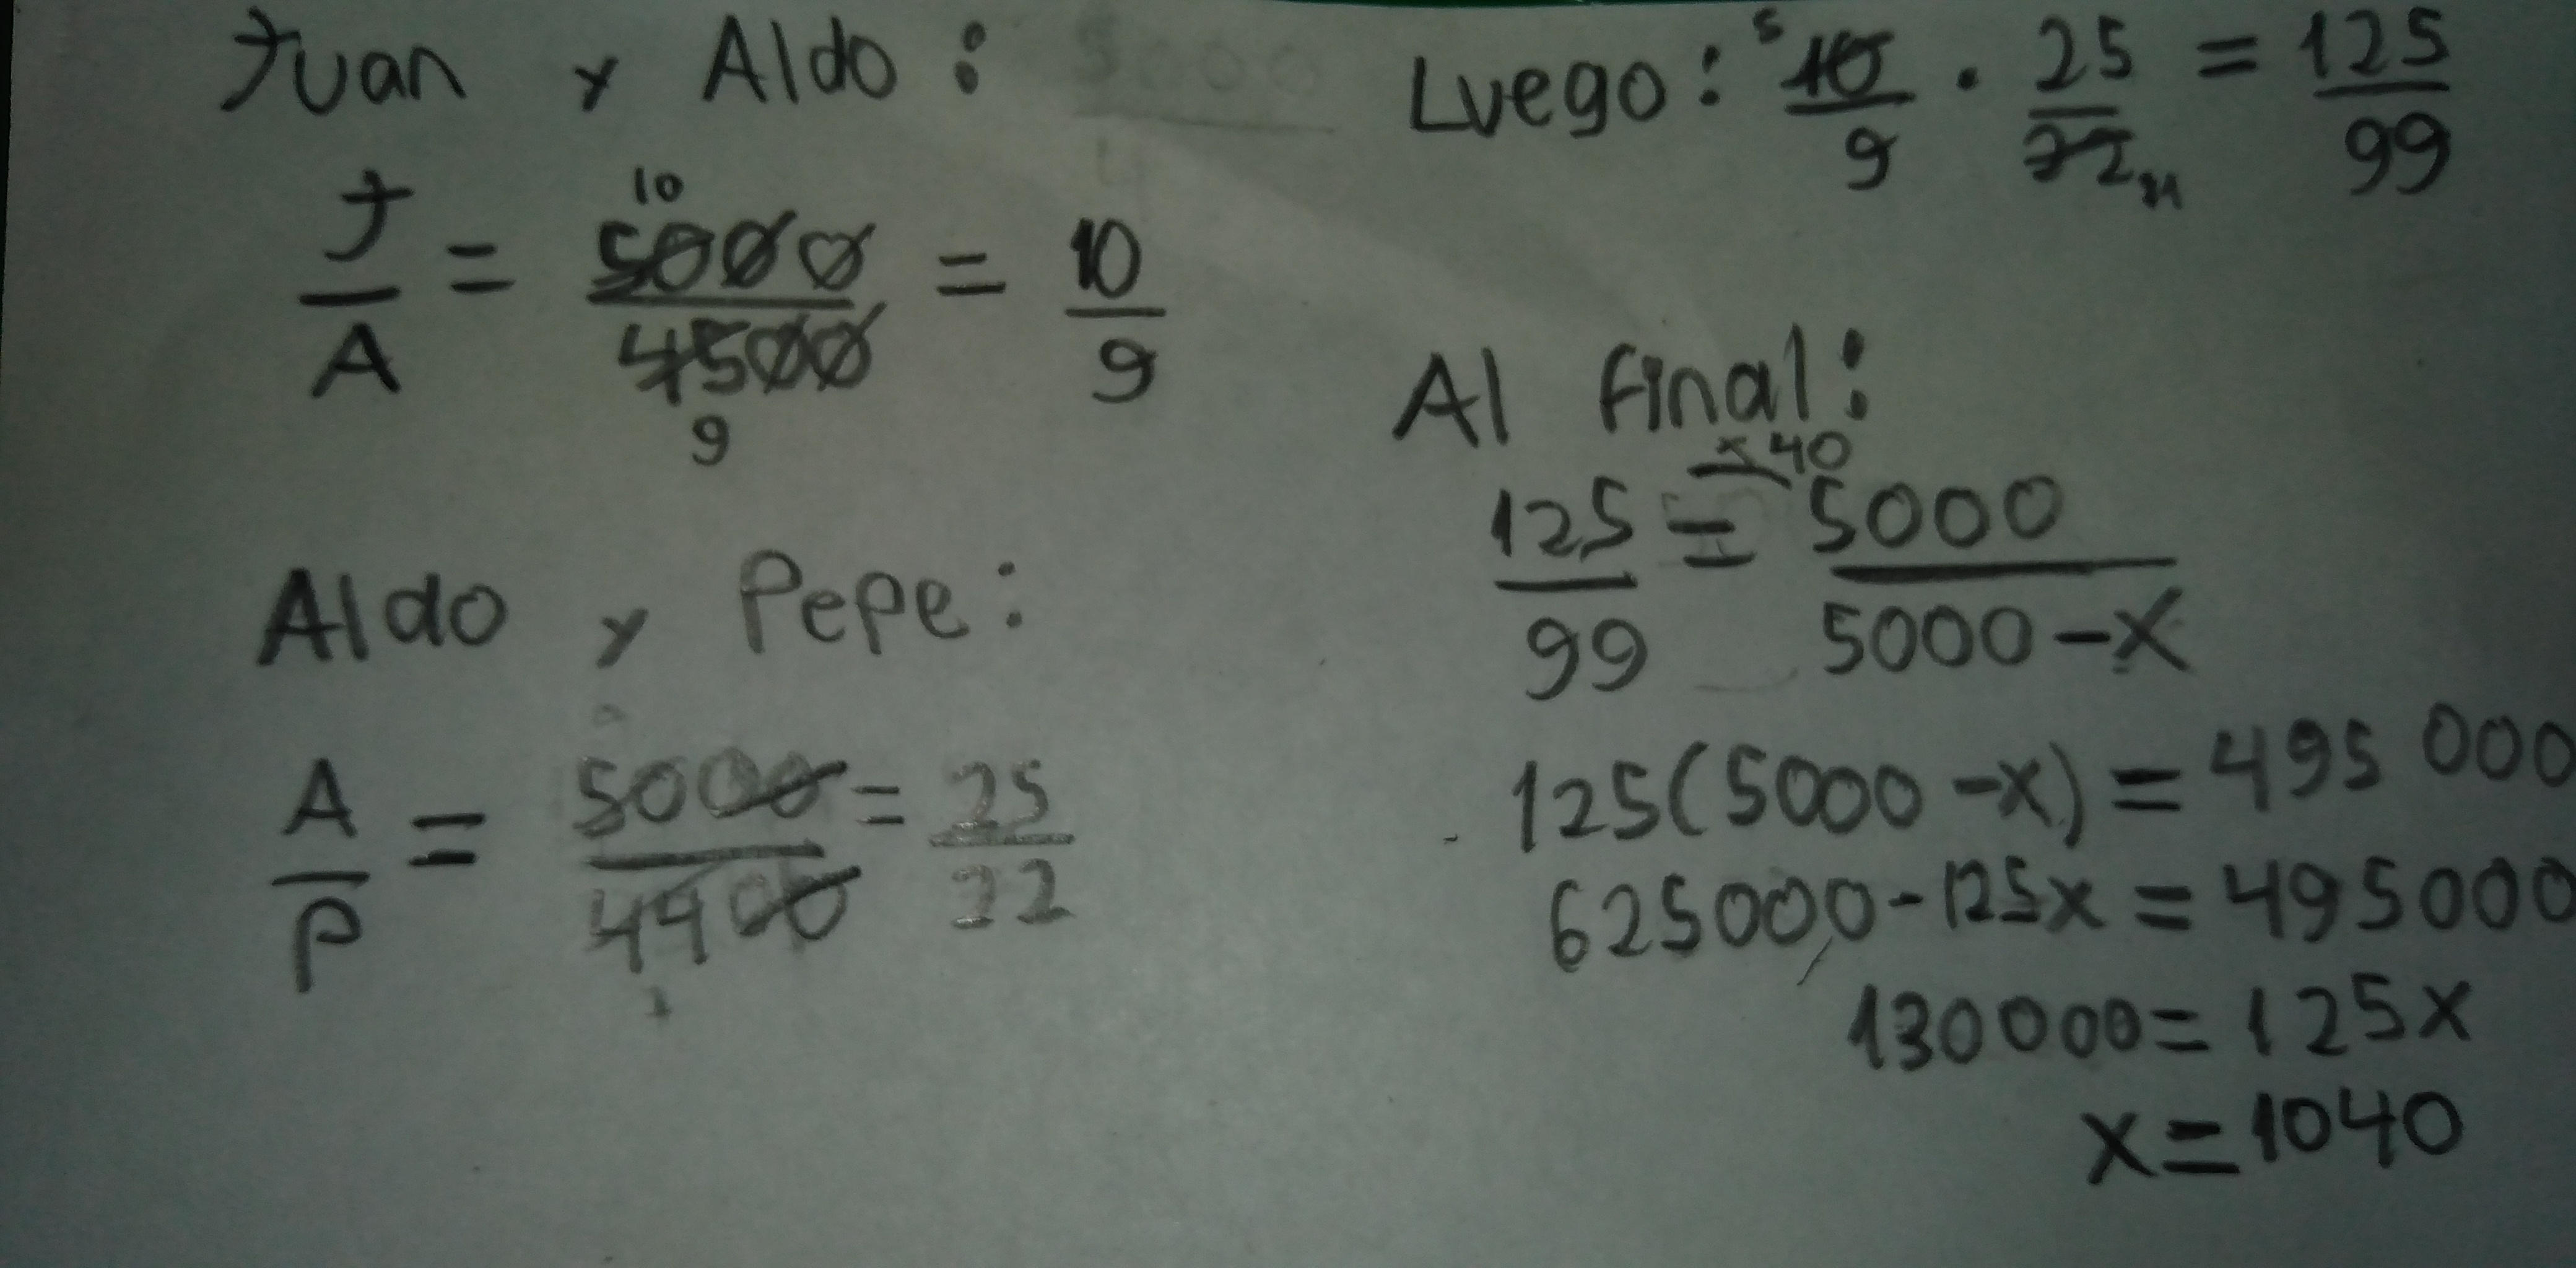 Juan y Aldo:
J/A = 5000/4500 = 10/9
10
9
Aldo y Pepe:
A/P = 5000/4400 = 25/22
Luego: 10/9 . 25/22 = 125/99
5
11
Al final:
x40
125/99 = 5000/5000-x
125(5000-x) = 495 000
625000-125x = 495000
130000 = 125x
x = 1040